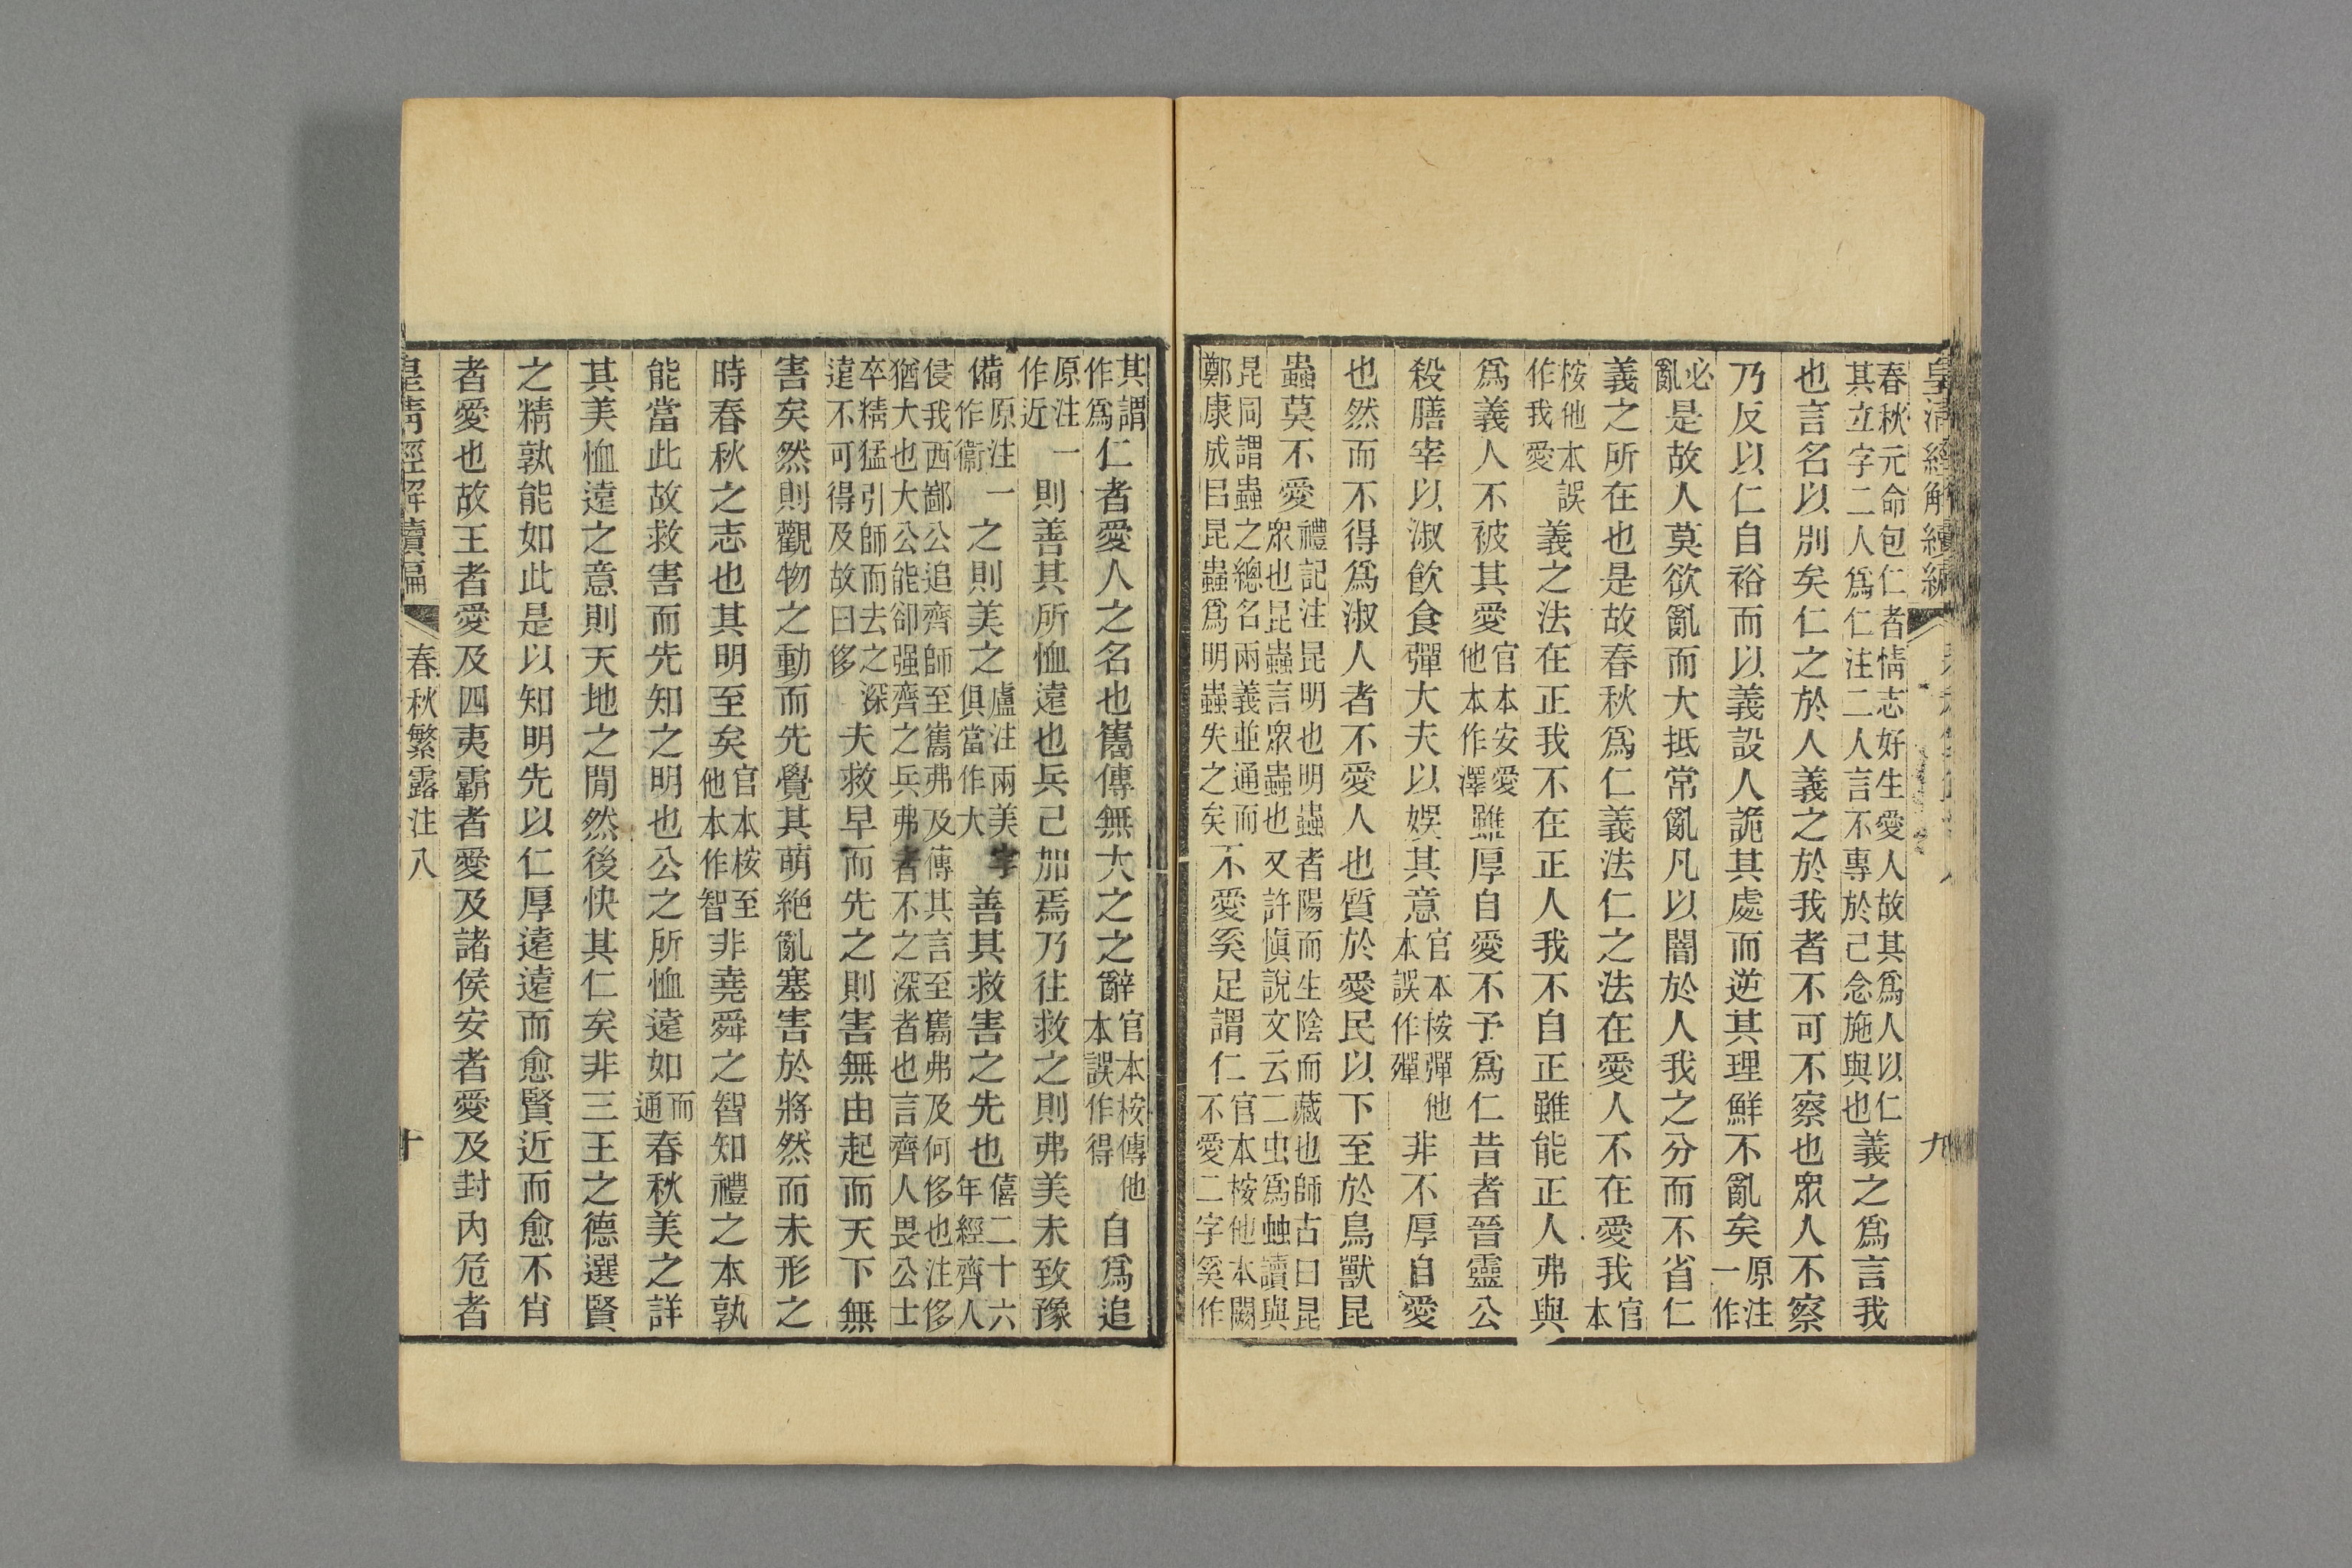 皇清經解續編
九
春秋元命包仁者情志好生愛人故其爲人以仁
其立字二人爲仁注二人言不專於己念施與也義之爲言我
也言名以別矣仁之於人義之於我者不可不察也眾人不察
乃反以仁自裕而以義設人詭其處而逆其理鮮不亂矣原注
一作
必
亂是故人莫欲亂而大抵常亂凡以闇於人我之分而不省仁
義之所在也是故春秋爲仁義法仁之法在愛人不在愛我官
本
桉他本誤
作我愛義之法在正我不在正人我不自正雖能正人弗與
爲義人不被其愛官本安愛
他本作澤雖厚自愛不予爲仁昔者晉靈公
殺膳宰以淑飲食彈大夫以娛其意官本桉彈他
本誤作殫非不厚自愛
也然而不得爲淑人者不愛人也質於愛民以下至於鳥獸昆
蟲莫不愛禮記注昆明也明蟲者陽而生陰而藏也師古曰昆
眾也昆蟲言眾蟲也又許愼說文云二虫爲䖵讀與
昆同謂蟲之總名兩義並通而
鄭康成曰昆蟲爲明蟲失之矣不愛奚足謂仁官本桉他本闕
不愛二字奚作
其謂
作爲仁者愛人之名也巂傳無大之之辭官本桉傳他
本誤作得自爲追
原注一
作近則善其所恤遠也兵已加焉乃往救之則弗美未致豫
備原注一
作衞之則美之盧注兩美字
俱當作大善其救害之先也僖二十六
年經齊人
侵我西鄙公追齊師至巂弗及傳其言至巂弗及何侈也注侈
猶大也大公能卻强齊之兵弗者不之深者也言齊人畏公士
卒精猛引師而去之深
遠不可得及故曰侈夫救早而先之則害無由起而天下無
害矣然則觀物之動而先覺其萌絶亂塞害於將然而未形之
時春秋之志也其明至矣官本桉至
他本作智非堯舜之智知禮之本孰
能當此故救害而先知之明也公之所恤遠如而
通春秋美之詳
其美恤遠之意則天地之閒然後快其仁矣非三王之德選賢
之精孰能如此是以知明先以仁厚遠遠而愈賢近而愈不肖
者愛也故王者愛及四夷霸者愛及諸侯安者愛及封內危者
皇清經解續編
春秋繁露注八
十